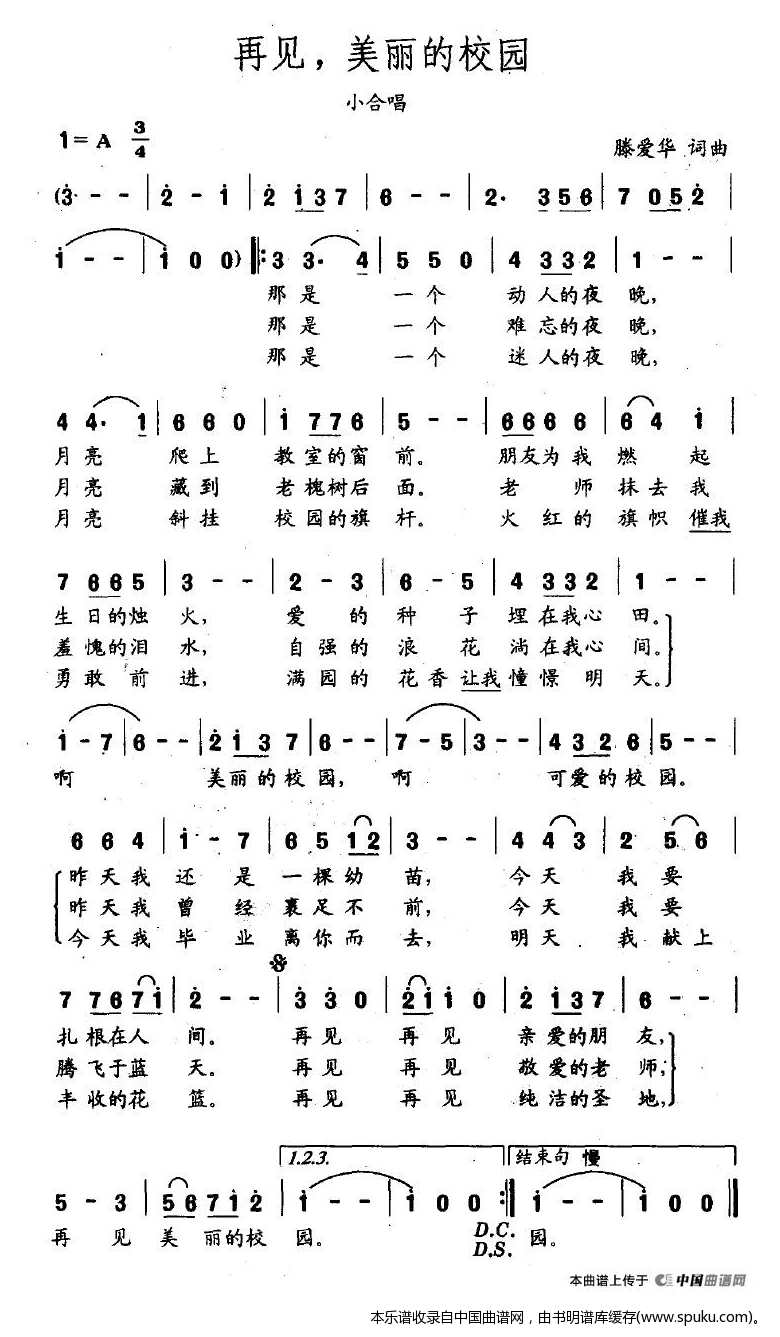 再见，美丽的校园
小合唱
1=A 3/4
滕爱华 词曲
(3 - - | 2 - 1 | 2 1 3 7 | 6 - - | 2· 3 5 6 | 7 0 5 2 |
1 - - | 1 0 0) |: 3 3· 4 | 5 5 0 | 4 3 3 2 | 1 - - |
那是 一个 动人的夜 晚,
那是 一个 难忘的夜 晚,
那是 一个 迷人的夜 晚,
4 4· 1 | 6 6 0 | 1 7 7 6 | 5 - - | 6 6 6 6 | 6 4 1 |
月亮 爬上 教室的窗 前。 朋友为我 燃 起
月亮 藏到 老槐树后 面。 老 师抹去我
月亮 斜挂 校园的旗 杆。 火红的旗帜催我
7 6 6 5 | 3 - - | 2 - 3 | 6 - 5 | 4 3 3 2 | 1 - - |
生日的烛 火, 爱 的 种 子 埋在我心 田。
羞愧的泪 水, 自强的 浪 花 淌在我心 间。
勇敢前 进, 满园的 花香让我憧憬明 天。
1 - 7 | 6 - - | 2 1 3 7 | 6 - - | 7 - 5 | 3 - - | 4 3 2 6 | 5 - - |
啊 美丽的校 园, 啊 可爱的校 园。
6 6 4 | 1 - 7 | 6 5 1 2 | 3 - - | 4 4 3 | 2 5 6 |
昨天我 还 是 一棵幼 苗, 今天 我 要
昨天我 曾 经 裹足不 前, 今天 我 要
今天我 毕 业 离你而 去, 明天 我献上
7 7 6 7 1 | 2 - - | 3 3 0 | 2 1 1 0 | 2 1 3 7 | 6 - - |
扎根在人 间。 再见 再见 亲爱的朋 友,
腾飞于蓝 天。 再见 再见 敬爱的老 师,
丰收的花 篮。 再见 再见 纯洁的圣 地,
1.2.3. 结束句 慢
5 - 3 | 5 6 7 1 2 | 1 - - | 1 0 0 :| 1 - - | 1 0 0 ||
再 见 美 丽的校 园。 D.C. 园。
D.S.
本曲谱上传于 中国曲谱网
本乐谱收录自中国曲谱网，由书明谱库缓存(www.spuku.com)。